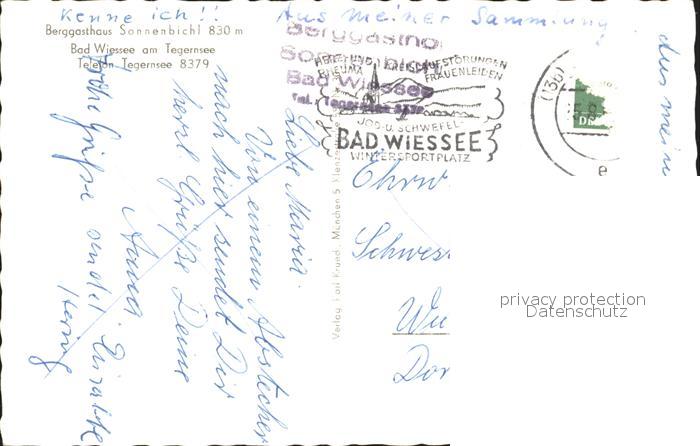 Kenne ich!!
Aus meiner Sammlung!
Berggasthaus Sonnenbichl 830 m
Bad Wiessee am Tegernsee
Telefon Tegernsee 8379
Bad Wiessee
Tel. Tegernsee 8379
FRAUENLEIDEN
JOD-U. SCHWEFEL-
BAD WIESSEE
WINTERSPORTPLATZ
(13b)
e
Aus meine
Liebe Maria.
Von einem Abstecher
nach hier sendet Dir
herzl. Grüße Deine
Anna.
Grüße sendet
Verlag Karl Krundl, München 5
Ehrw.
Schwes
Wu
Dor
privacy protection
Datenschutz